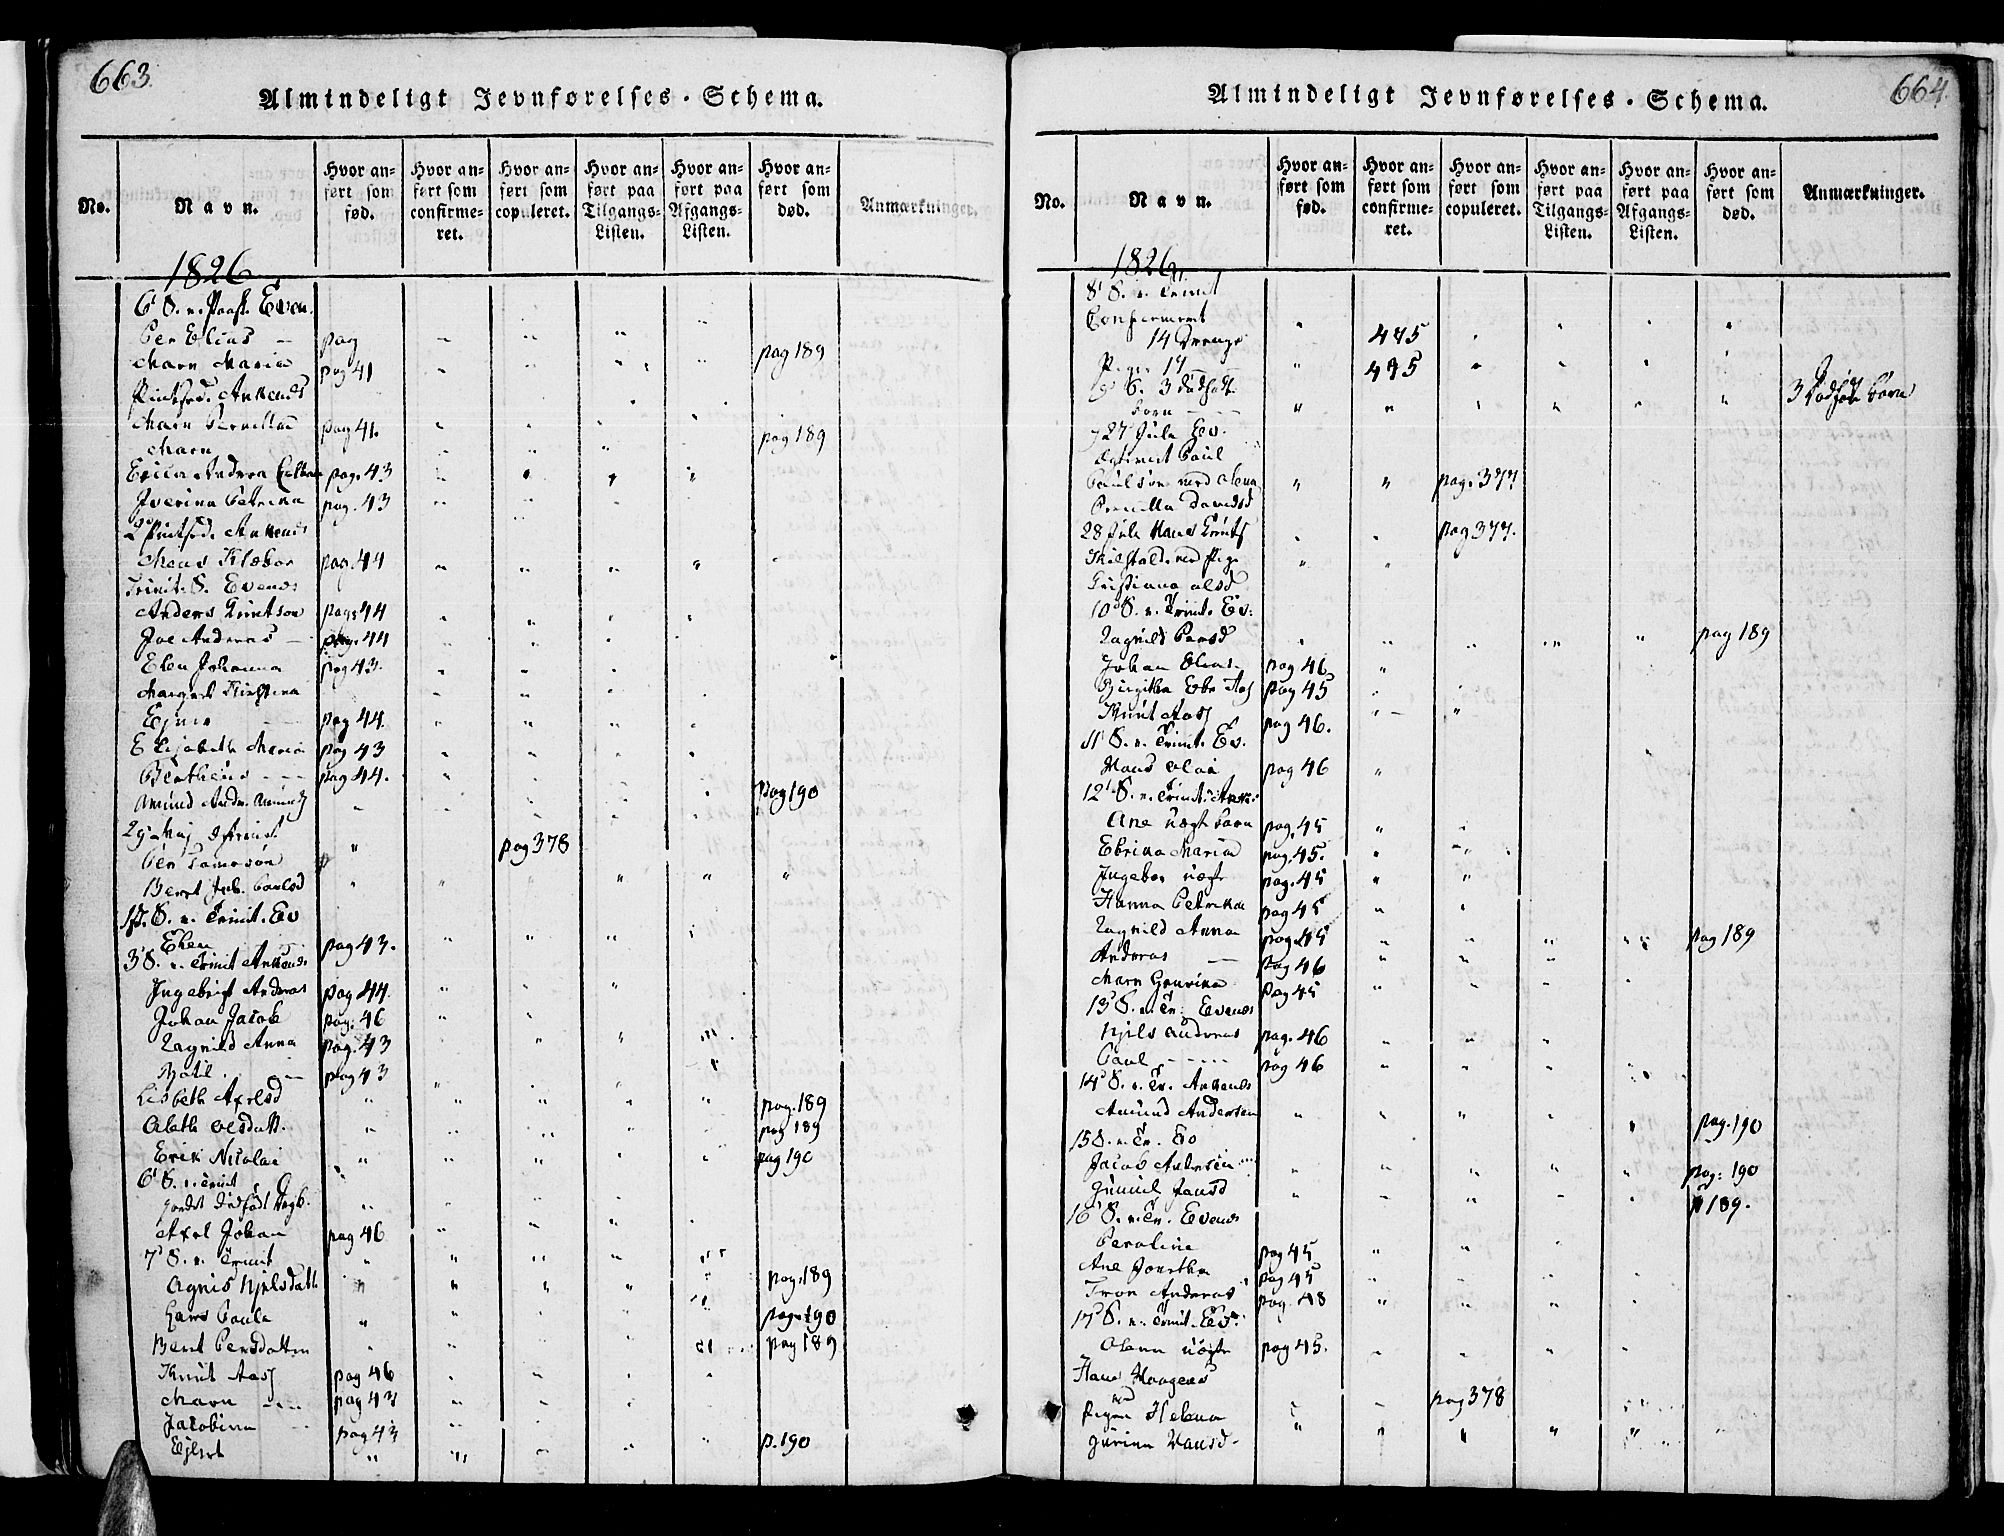 663.
Almindeligt Jevnførelses-Schema.
No. Navn. Hvor anført som fød. Hvor anført som confirmeret. Hvor anført som copuleret. Hvor anført paa Tilgangs-Listen. Hvor anført paa Afgangs-Listen. Hvor anført som død. Anmærkninger.
1826
6' S. e. Paask. Even.
Per Elias — pag
pag 189
Maren Maria pag 41
Ankenæs
Maren Pernilla pag 41.
Maren pag 189
Erica Andrea pag. 43
Iverina Petrina pag. 43
2 Pintsed. Ankenes
Mons Klæboe pag. 44
Trinit. S. Evenes
Anders Knutson pag. 44
Joe Andreas — pag. 44
Elen Johanna pag 43.
Margret Kirstina
Ejner pag 44.
Elisabeth Maria pag 43
Bertheus pag 44.
Amund Andr. pag 190
29 Maj
Per pag 378
Berit
S. e. Trinit. Ev
Elen pag 43.
3' S. e. Trinit Ankenes
Ingebrigt Andreas pag 44.
Johan Jacob pag. 46
Ragnild Anna pag. 43
Botil pag 43
Lisbeth Axelsd pag. 189
Oleth Olsdatt. pag 189
Erik Nicolai pag 190
6' S. e. Trinit
Axel Johan pag 46
7' S. e. Trinit
Agnis Njelsdatt pag. 189
Lars Paule pag. 190
Berit Persdatter pag 189
Knut Aas pag 46
Maren pag 43
Jacobina pag 43
Ejlert p. 190
664.
Almindeligt Jevnførelses-Schema.
No. Navn. Hvor anført som fød. Hvor anført som confirmeret. Hvor anført som copuleret. Hvor anført paa Tilgangs-Listen. Hvor anført paa Afgangs-Listen. Hvor anført som død. Anmærkninger.
1826
8' S. e. Trinit
Confirmeret
14 Drenge 475
Piger 17 475
S. 3 dødfødt
born 3 dødfødte børn
27 Jule Ev.
Paul
Paulsøn med Anna pag. 377
Pernilla Davidsd
28 Jule Hans pag 377.
med Pige
Cristiana Olsd
10' S. e. Trinit. Ev:
Ragnild Persd pag 189
Johan Elias pag 46
Birgitha Ebr pag 45
Knut Aas pag 46.
11' S. e. Trinit. Ev.
Hans Olai pag 46
12' S. e. Trinit. Anke:
Ane pag. 45
Ebrika Maria pag. 45.
Ingebor pag. 45
Hanna Petrikke pag 45
Ragnild Anna pag. 45 pag 189
Andreas — pag 46
Maren Gurina pag 45
13' S. e. Tr: Evenes
Njels Andreas pag. 46
Paul pag 46
14' S. e. Tr. Ankenes
Amund Andersen pag. 190
15 S. e. Tr. Ev
Jacob Andersen pag: 190
Gunnil Jansd p 189.
16' S. e. Tr. Evenes
Peroline pag 45
Ane Dorthea pag 45
Tron Andreas pag. 48
17' S. e. Trinit. Ev.
Olava pag 45.
Hans Haagens
med pag 378
Pigen Helena
Gurina Hansd